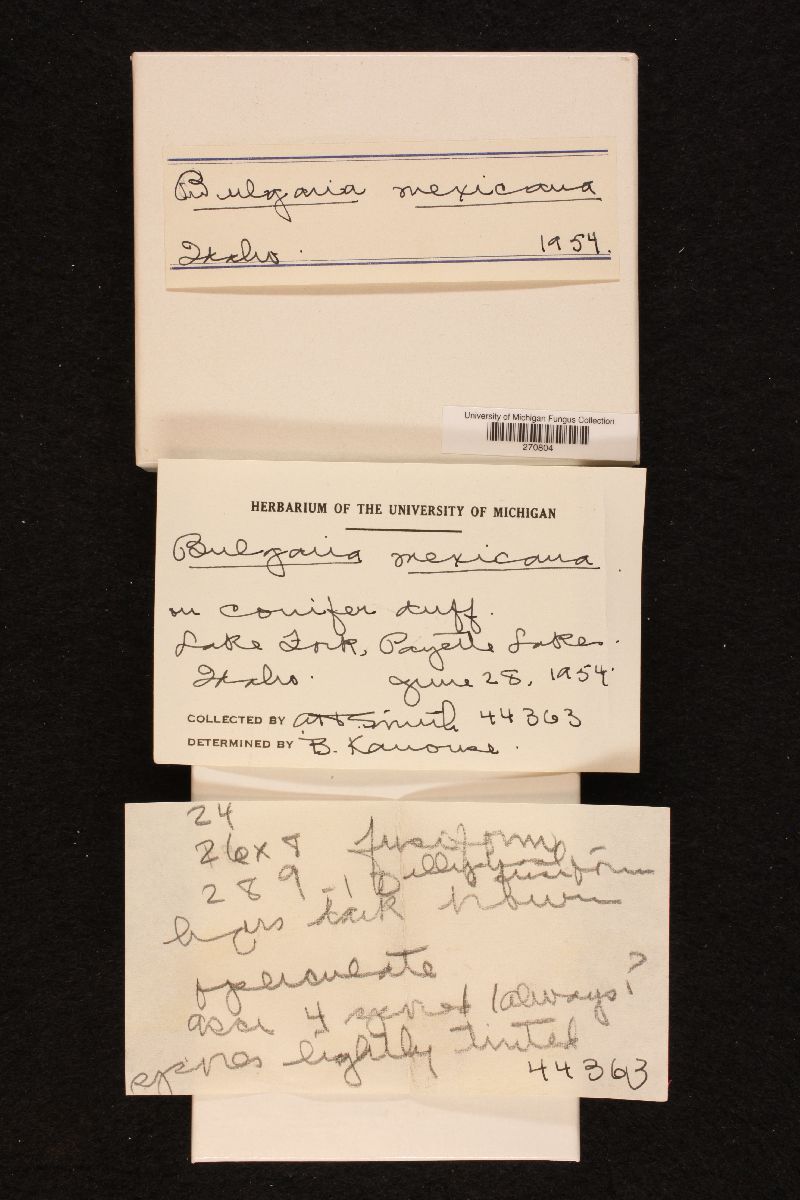 Bulgaria mexicana
Idaho. 1954.
University of Michigan Fungus Collection
270804
HERBARIUM OF THE UNIVERSITY OF MICHIGAN
Bulgaria mexicana.
on conifer duff.
Lake Fork, Payette Lakes.
Idaho. June 28, 1954
COLLECTED BY A.H. Smith 44363
DETERMINED BY B. Kanouse.
24
26x8 fusiform
28 9-10 fusiform
dark brown
operculate
asci 4 spored (always?
spores lightly tinted
44363